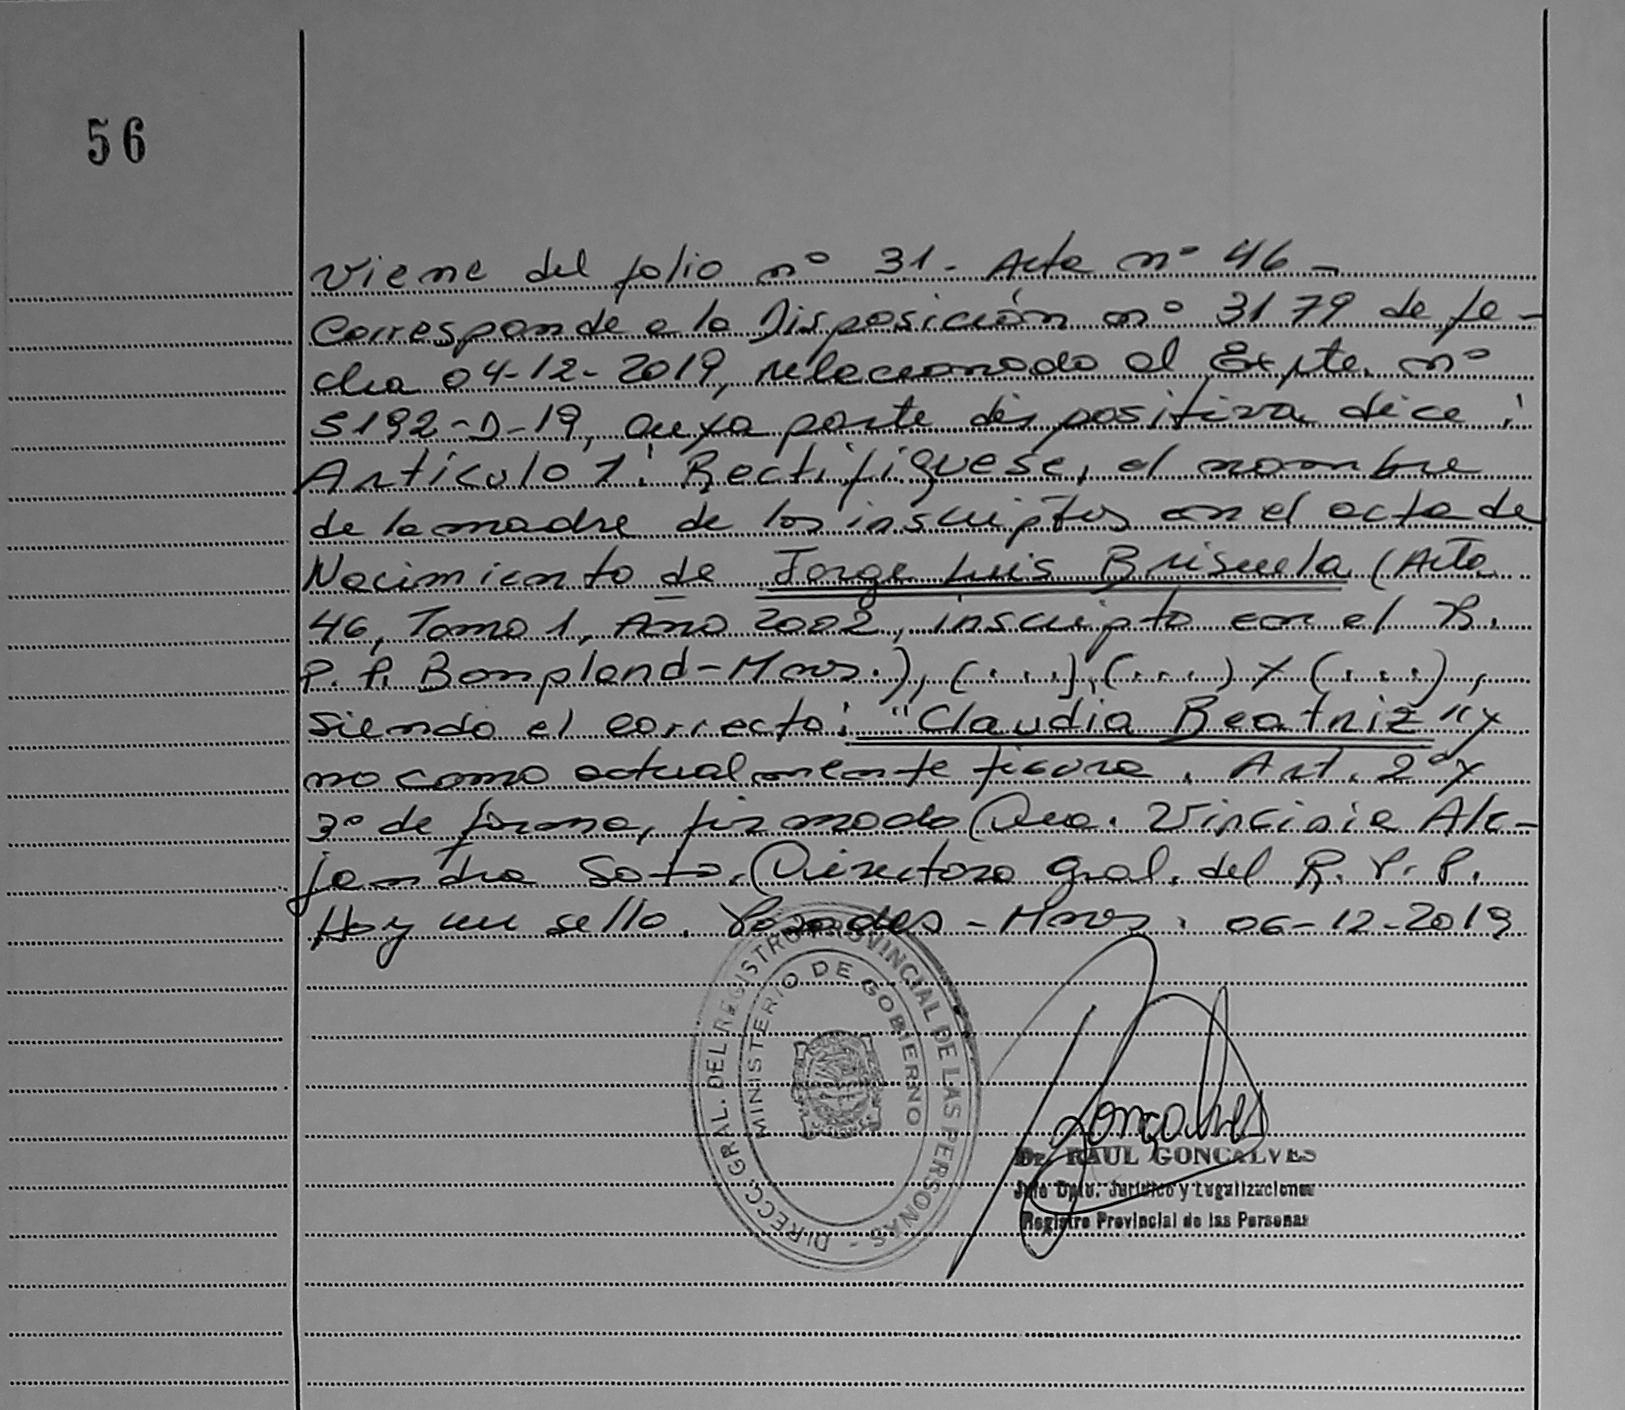 56
Viene del folio nº 31 - Acta nº 46 -
Corresponde a la Disposición nº 3179 de fe-
cha 04-12-2019, relacionado al Expte. nº
5192-D-19, cuya parte dispositiva dice:
Artículo 1: Rectifíquese, el nombre
de la madre de los inscriptos en el acta de
Nacimiento de Jorge Luis Brisuela (Acta
46, Tomo 1, Año 2002, inscripto en el R.
P. P. Bonpland-Mnes.), (....), (....) y (....),
siendo el correcto: "Claudia Beatriz" y
no como actualmente figura. Art. 2º y
3º de forma, firmado Dra. Virginia Ale-
jandra Soto. Directora Gral. del R. P. P.
Hay un sello. Posadas - Mnes. 06-12-2019
DIRECC. GRAL. DEL REGISTRO PROVINCIAL DE LAS PERSONAS -
MINISTERIO DE GOBIERNO
Gonçalves
Dr. RAUL GONCALVES
Jefe Dpto. Jurídico y Legalizaciones
Registro Provincial de las Personas